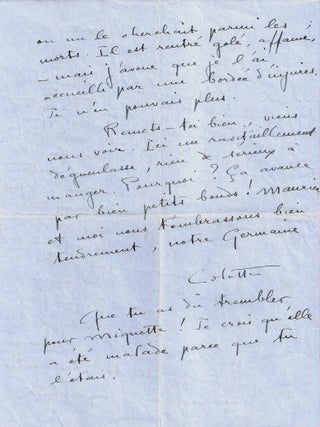 on me le cherchait parmi les
morts. Il est rentré gelé, affamé,
— mais j'avoue que je l'ai
accueilli par une bordée d'injures.
Je n'en pouvais plus.
Remets-toi bien, viens
nous voir. Ici un ravitaillement
dégueulasse, rien de sérieux à
manger. Pourquoi ? Ça avance
par bien petits bonds ! Maurice
et moi nous t'embrassons bien
tendrement, notre Germaine
Colette
Que tu as dû trembler
pour Miquette ! Je crois qu'elle
a été malade parce que tu
l'étais.